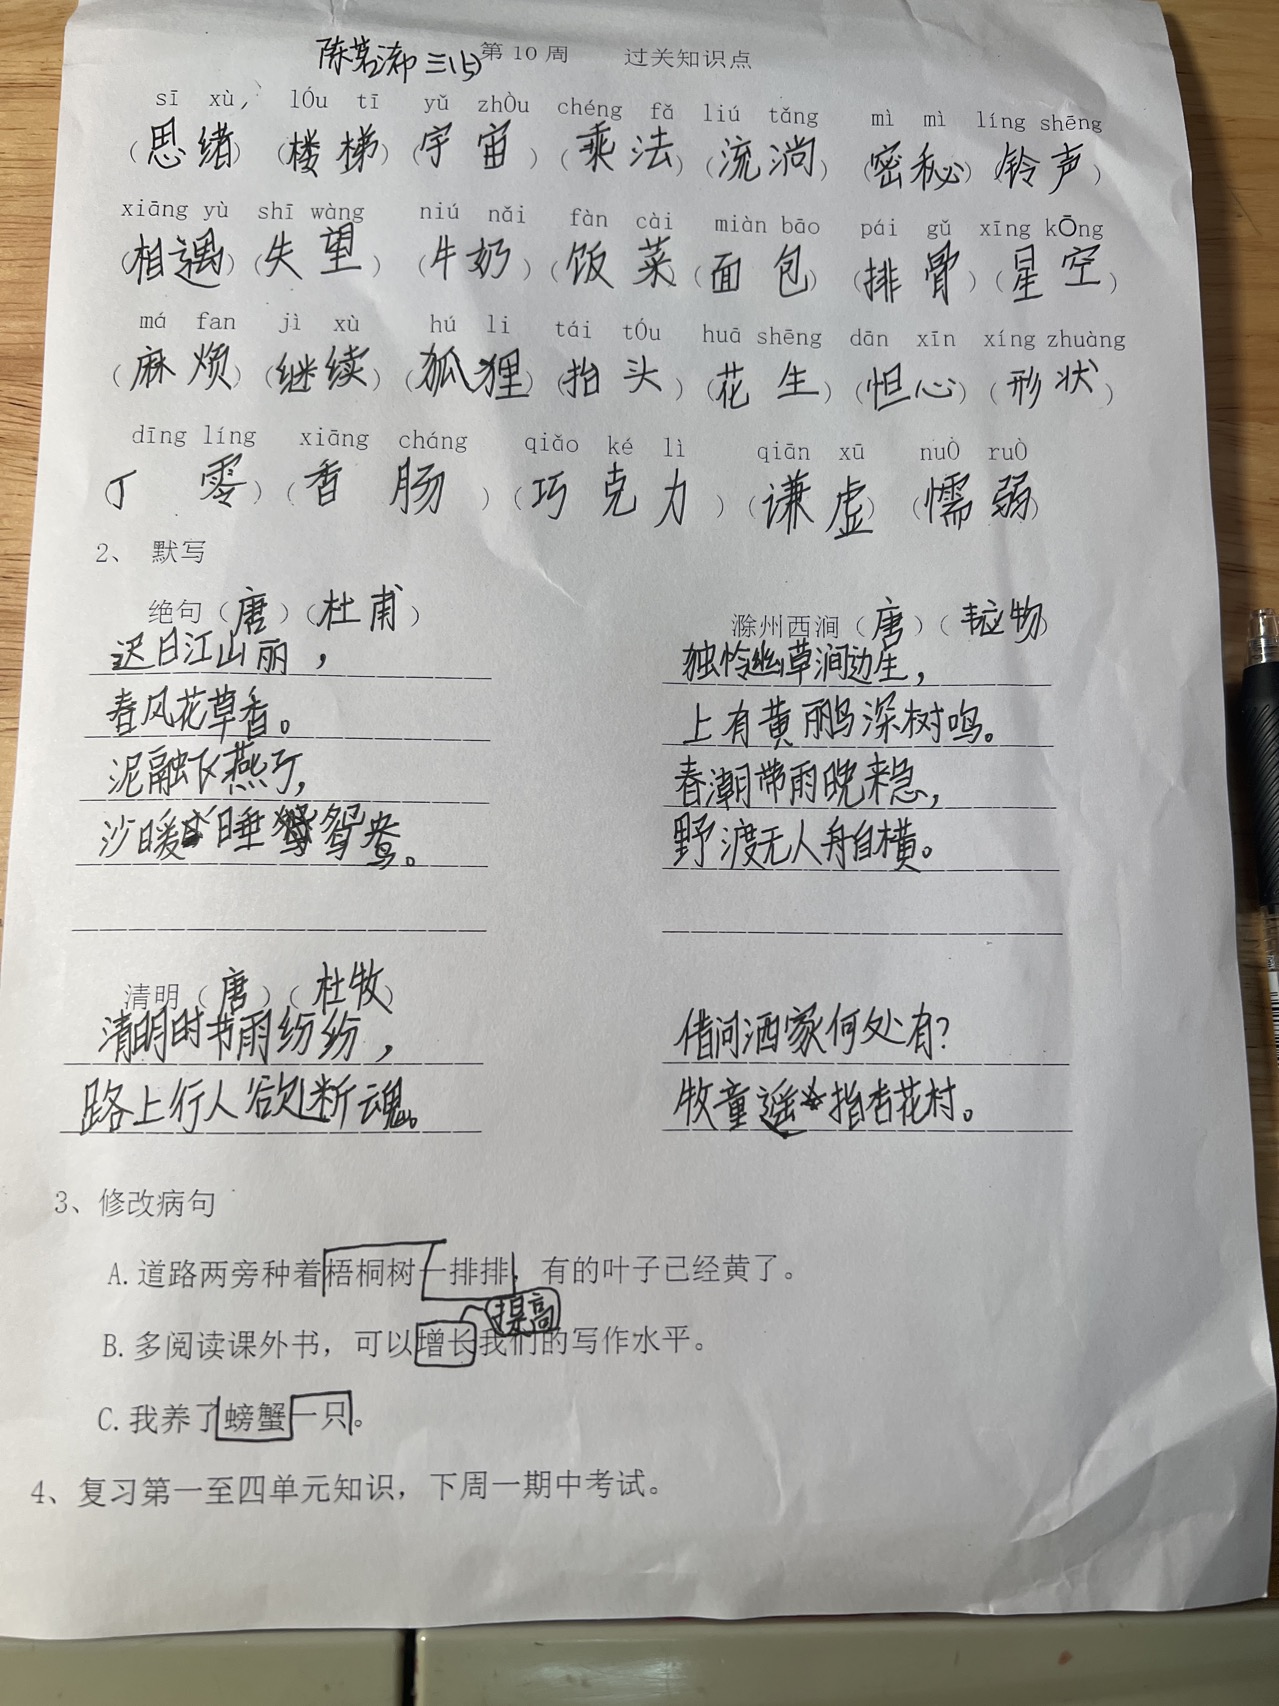 陈 三(5) 第10周 过关知识点
sī xù, lóu tī yǔ zhòu chéng fǎ liú tǎng mì mì líng shēng
(思绪) (楼梯) (宇宙) (乘法) (流淌) (密秘) (铃声)
xiāng yù shī wàng niú nǎi fàn cài miàn bāo pái gǔ xīng kōng
(相遇) (失望) (牛奶) (饭菜) (面包) (排骨) (星空)
má fan jì xù hú li tái tóu huā shēng dān xīn xíng zhuàng
(麻烦) (继续) (狐狸) (抬头) (花生) (怛心) (形状)
dīng líng xiāng cháng qiǎo ké lì qiān xū nuò ruò
(丁零) (香肠) (巧克力) (谦虚) (懦弱)
2、 默写
绝句(唐)(杜甫)
迟日江山丽，
春风花草香。
泥融飞燕子，
沙暖睡鸳鸯。
滁州西涧(唐)(韦应物)
独怜幽草涧边生，
上有黄鹂深树鸣。
春潮带雨晚来急，
野渡无人舟自横。
清明(唐)(杜牧)
清明时节雨纷纷，
路上行人欲断魂。
借问酒家何处有？
牧童遥指杏花村。
3、修改病句
A.道路两旁种着梧桐树一排排，有的叶子已经黄了。
提高
B.多阅读课外书，可以增长我们的写作水平。
C.我养了螃蟹一只。
4、复习第一至四单元知识，下周一期中考试。